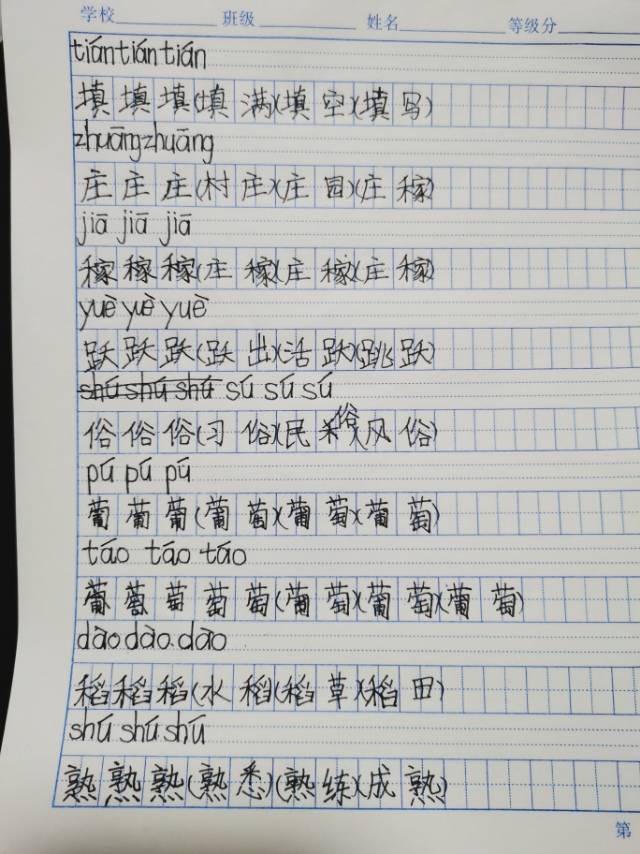 学校 班级 姓名 等级分
tián tián tián
填 填 填(填 满)(填 空)(填 写)
zhuāng zhuāng
庄 庄 庄(村 庄)(庄 园)(庄 稼)
jiā jiā jiā
稼 稼 稼(庄 稼)(庄 稼)(庄 稼)
yuè yuè yuè
跃 跃 跃(跃 出)(活 跃)(跳 跃)
shú shú shú sú sú sú
俗 俗 俗(习 俗)(民 俗)(风 俗)
pú pú pú
葡 葡 葡(葡 萄)(葡 萄)(葡 萄)
táo táo táo
葡 萄 萄 萄 萄(葡 萄)(葡 萄)(葡 萄)
dào dào dào
稻 稻 稻(水 稻)(稻 草)(稻 田)
shú shú shú
熟 熟 熟(熟 悉)(熟 练)(成 熟)
第